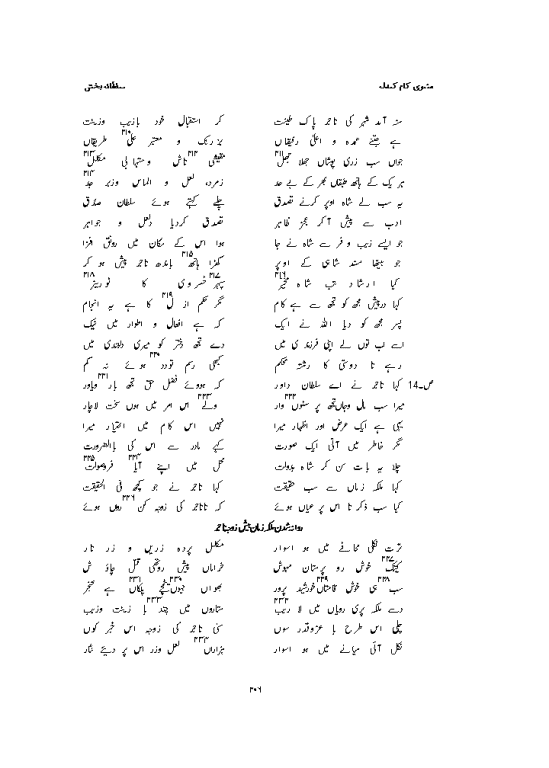 مثنوی کام کندلہ سلطانہ بخشی
سنہ آمد شہر کی تاجر پاک طینت کر استقبال خود بازیب وزینت
ہے جتنے عمدہ و اعلیٰ رفیقاں بزرگ و معتبر عالی۲۱۰ طریقاں
جواں سب زری پوشاں جھلا جھل۲۱۱ مقیشی۲۱۲ تاش و متہابی مکلل۲۱۳
ہر یک کے ہاتھ طبقاں بھر کے بے حد زمرد، لعل و الماس وزبر جد۲۱۴
یہ سب لے شاہ اوپر کرنے تصدق چلے کہتے ہوئے سلطان صدق
ادب سے پیش آ کر بجز ظاہر تصدق کردیا لعل و جواہر
جو ایسے زیب و فر سے شاہ نے جا ہوا اس کے مکان میں رونق افزا
جو بیٹھا مسند شاہی کے اوپر کھڑا ہاتھ۲۱۵ باندھ تاجر پیش ہو کر
کیا ارشاد تب شاہ۲۱۶ سپہر۲۱۷ خسروی کا نور۲۱۸
کہا درپیش مجھ کو تجھ سے ہے کام مگر حکم از ل۲۱۹ کا ہے یہ انجام
پسر مجھ کو دیا اللہ نے ایک کہ ہے افعال و اطوار میں نیک
اسے اب توں لے اپنی فرزندی میں دے تجھ دختر کو میری دلبندی میں
رہے تا دوستی کا رشتہ محکم کبھی رسم تودد۲۲۰ ہوئے نہ کم
ص۔14 کہا تاجر نے اے سلطان داور کہ ہووے فضل حق تجھ یار۲۲۱ ویاور
میرا سب مال وجاں تجھ پر ستوں۲۲۲ وار ولے۲۲۳ اس امر میں ہوں سخت لاچار
یہی ہے ایک عرض اور اظہار میرا نہیں اس کام میں اختیار میرا
مگر خاطر میں آتی ایک صورت کہے مادر سے اس کی بالضرورت
چلا یہ بات سن کر شاہ بدولت محل میں اپنے آیا۲۲۴ فرصولت۲۲۵
کہا ملکہ زماں سے سب حقیقت کہا تاجر نے جو کچھ فی الحقیقت
کہا سب ذکر تا اس پر عیاں ہوئے کہ تا تاجر کی زوجہ کن۲۲۶ رواں ہوئے
روانہ شدن ملکہ زماں پیش زوجہ تاجر
ترت نکلی محافے میں ہو اسوار مکلل پردہ زریں و زر تار
کنیتک۲۲۷ خوش رو پرستان مہوش خراماں پیش روتھی چاؤش
سب۲۲۸ ہی خوش قامتاں۲۲۹ خورشید پرور بھواں جیوں۲۳۰ پلکاں۲۳۱ ہے خنجر
دسے ملکہ پری رویاں میں لا ریب۲۳۲ ستاروں میں چند۲۳۳ با زینت وزیب
چلی اس طرح با عزوقدر سوں سنی تاجر کی زوجہ اس خبر کوں
نکل آئی میانے میں ہو اسوار ہزاراں۲۳۴ لعل وزر اس پر دیئے نثار
۲۰۶